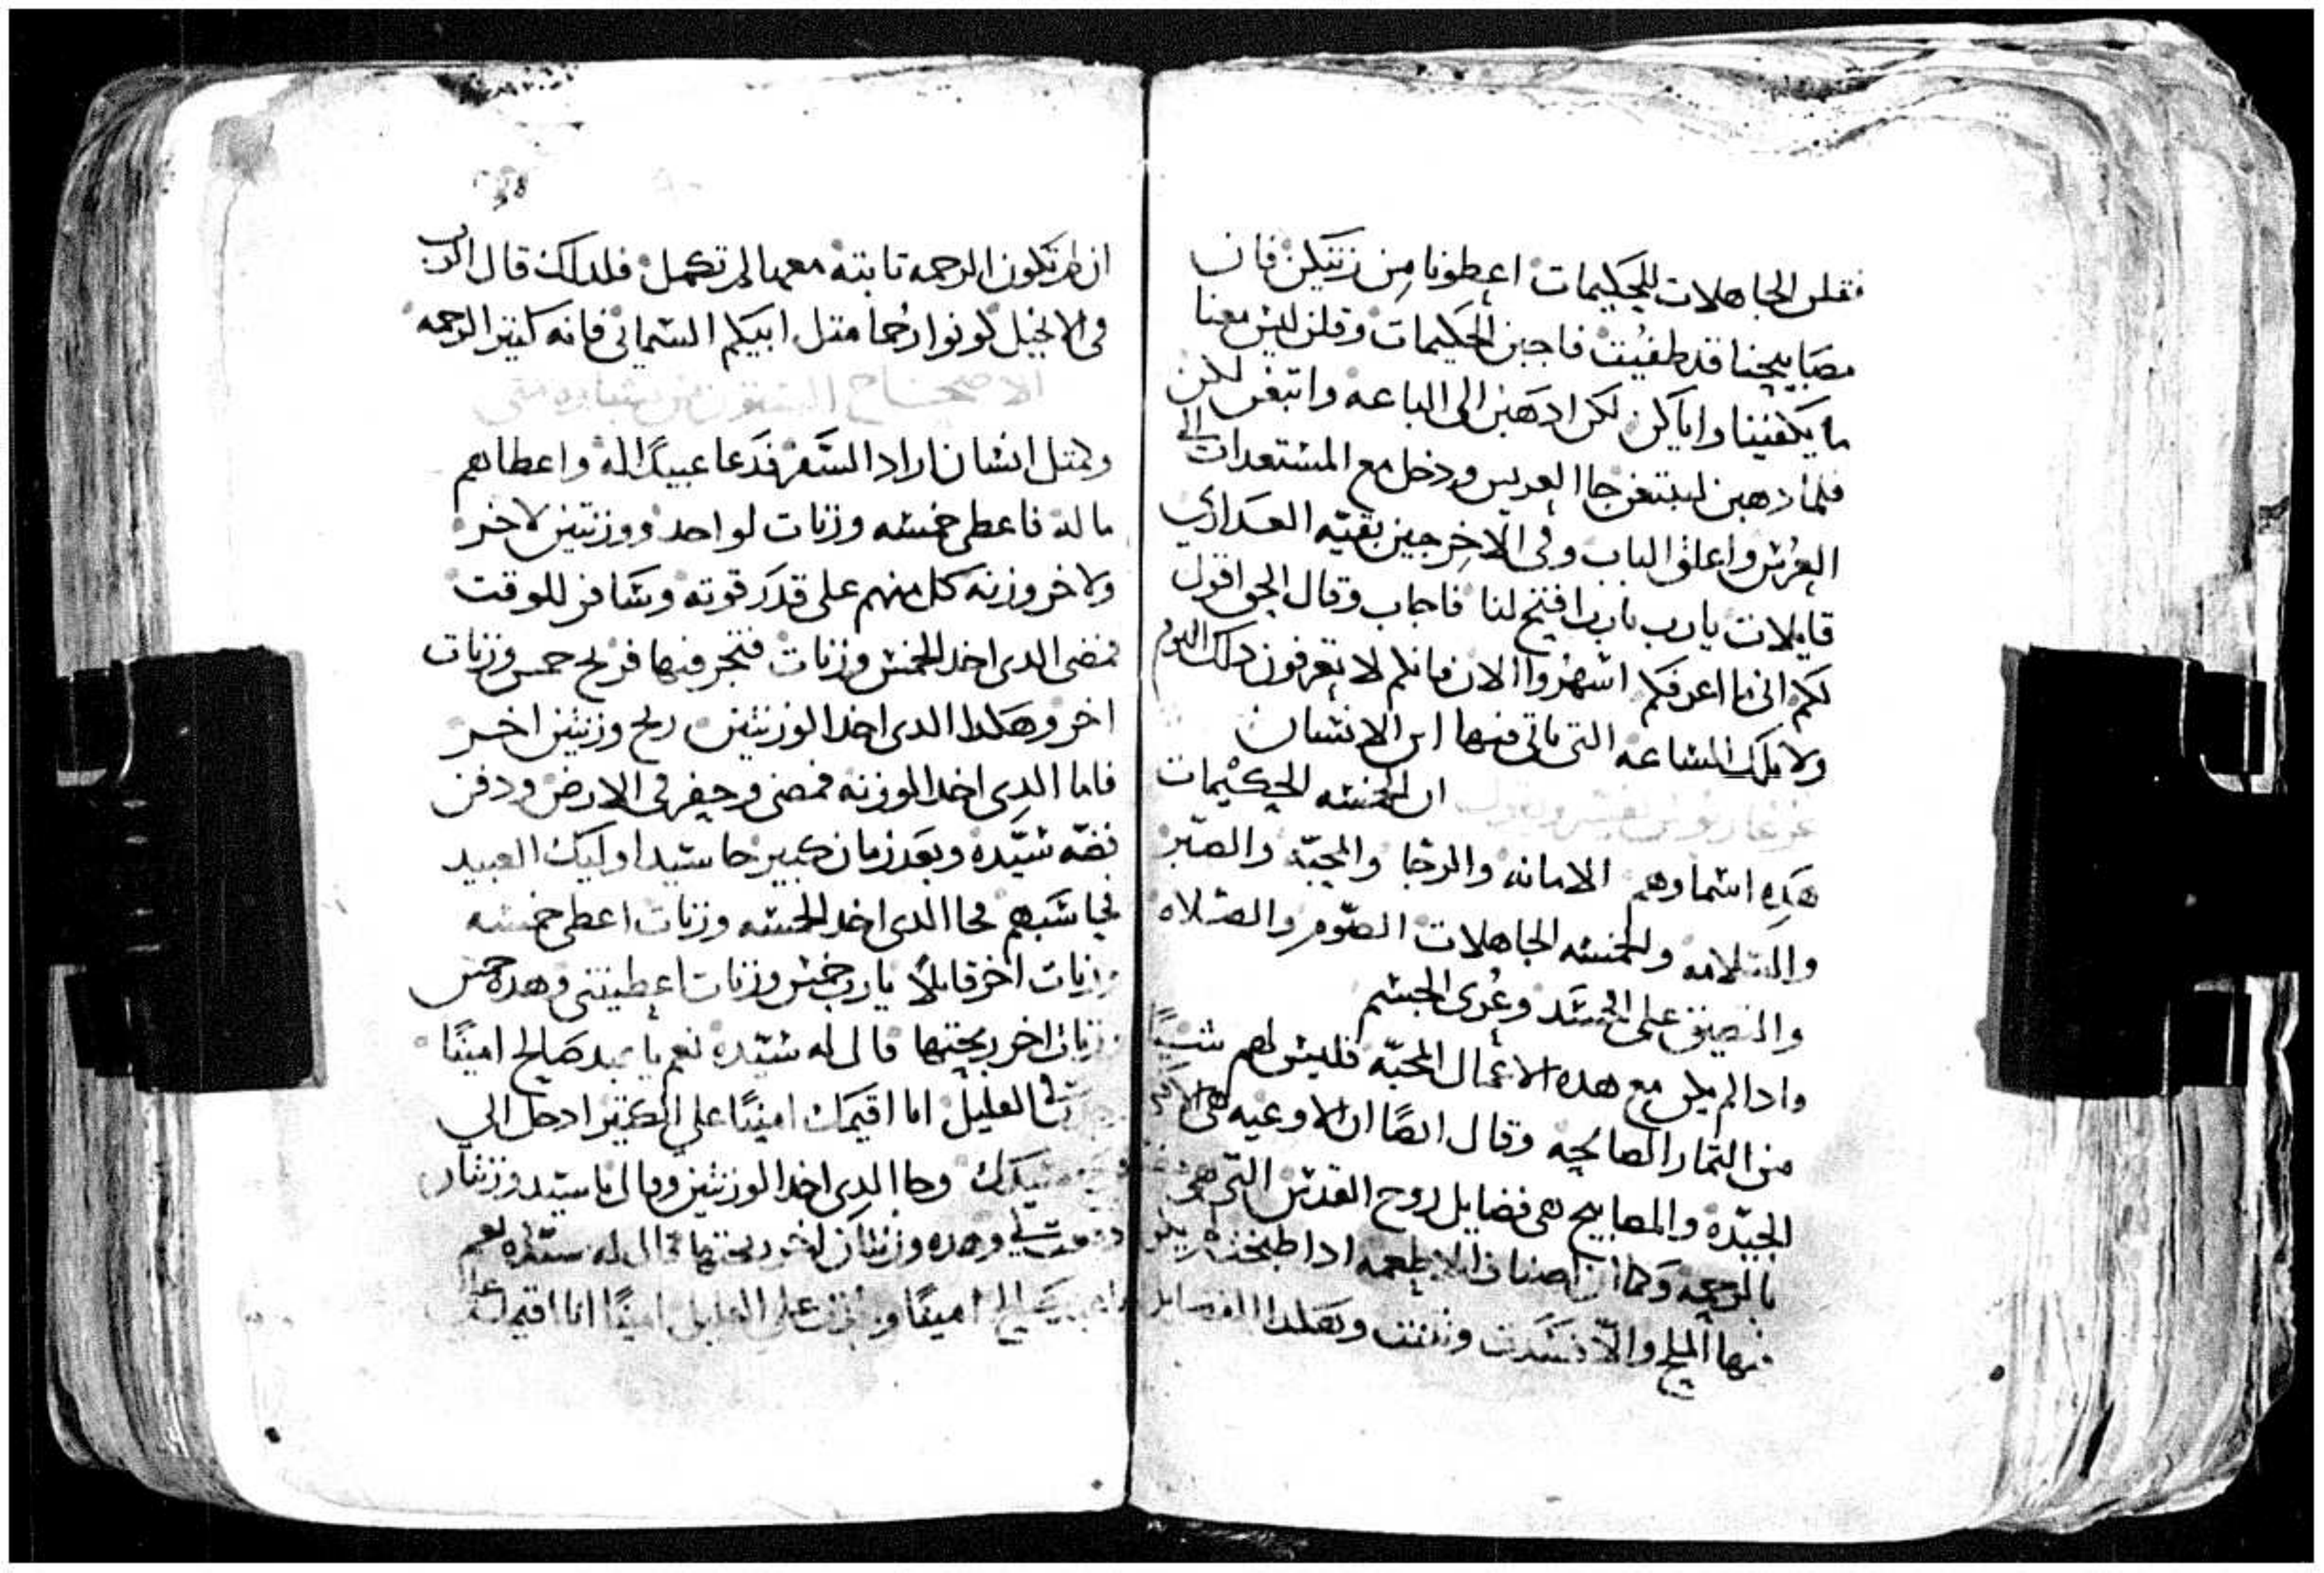 فقلن الجاهلات للحكيمات اعطونا من زيتكن فان
مصابيحنا قد طفيت فاجبن الحكيمات وقلن ليس معنا
ما يكفينا واياكن لكن ادهبن الى الباعه وابتعن لكن
فلما دهبن ليبتعن جا العريس ودخل مع المستعدات الى
العرس واغلق الباب وفى الاخر جين بقيّه العدارى
قايلات يارب يارب افتح لنا فاجاب وقال الحق اقول
لكم انى ما اعرفكم اسهروا الان فانكم لا تعرفون دلك اليوم
ولا تلك الساعه التى ياتى فيها ابن الانسان
ان الخمسه الحكيمات
هده اسماوهم الامانه والرجا والمحبّه والصبر
والسلامه والخمسه الجاهلات الصوم والصلاه
على الجسد وعُرى الجسم
وادا لم يكن مع هده الاعمال المحبّه فليس لهم شيًا
من التمار الصالحه وقال ايضًا ان الاوعيه هى
الجيّده والمصابيح هى فضايل روح القدس التى هى
بالرحمه وكما ان اصناف الاطعمه ادا طبخت
فيها الملح والاّ فسدت ونتنت وهكدا الفضايل
ان لم تكون الرحمه تابته معها لم تكمل فلدلك قال الرب
فى الانجيل كونوا رُحما متل ابيكم السمانى فانه كتير الرحمه
الاصحاح من بشاره متى
وكمتل انسان اراد السفر فدعا عبيدًا له واعطاهم
ماله فاعطى خمسه وزنات لواحد ووزنتين لاخر
ولاخر وزنه كل منهم على قدر قوته وسافر للوقت
فمضى الدى اخد الخمس وزنات فتجر فيها فربح خمس وزنات
اخر وهكدا الدى اخد الوزنتين ربح وزنتين اخر
فاما الدى اخد الوزنه فمضى وحفر فى الارض ودفن
فضّه سيّده وبعد زمان كبير جا سيد اوليك العبيد
فحاسبهم فجا الدى اخد الخمسه وزنات اعطى خمسه
وزنات اخر قايلاً يارب خمس وزنات اعطيتنى وهده خمس
وزنات اخر ربحتها قال له سيّده نعم يا عبد صالح امينًا
القليل انا اقيمك امينًا على الكتير ادخل الى
سيدك وجا الدى اخد الوزنتين وقال يا سيد وزنتان
دفعت لى وهده وزنتان اخر ربحتها قال له سيّده نعم
امينًا على القليل امينًا انا اقيمك على